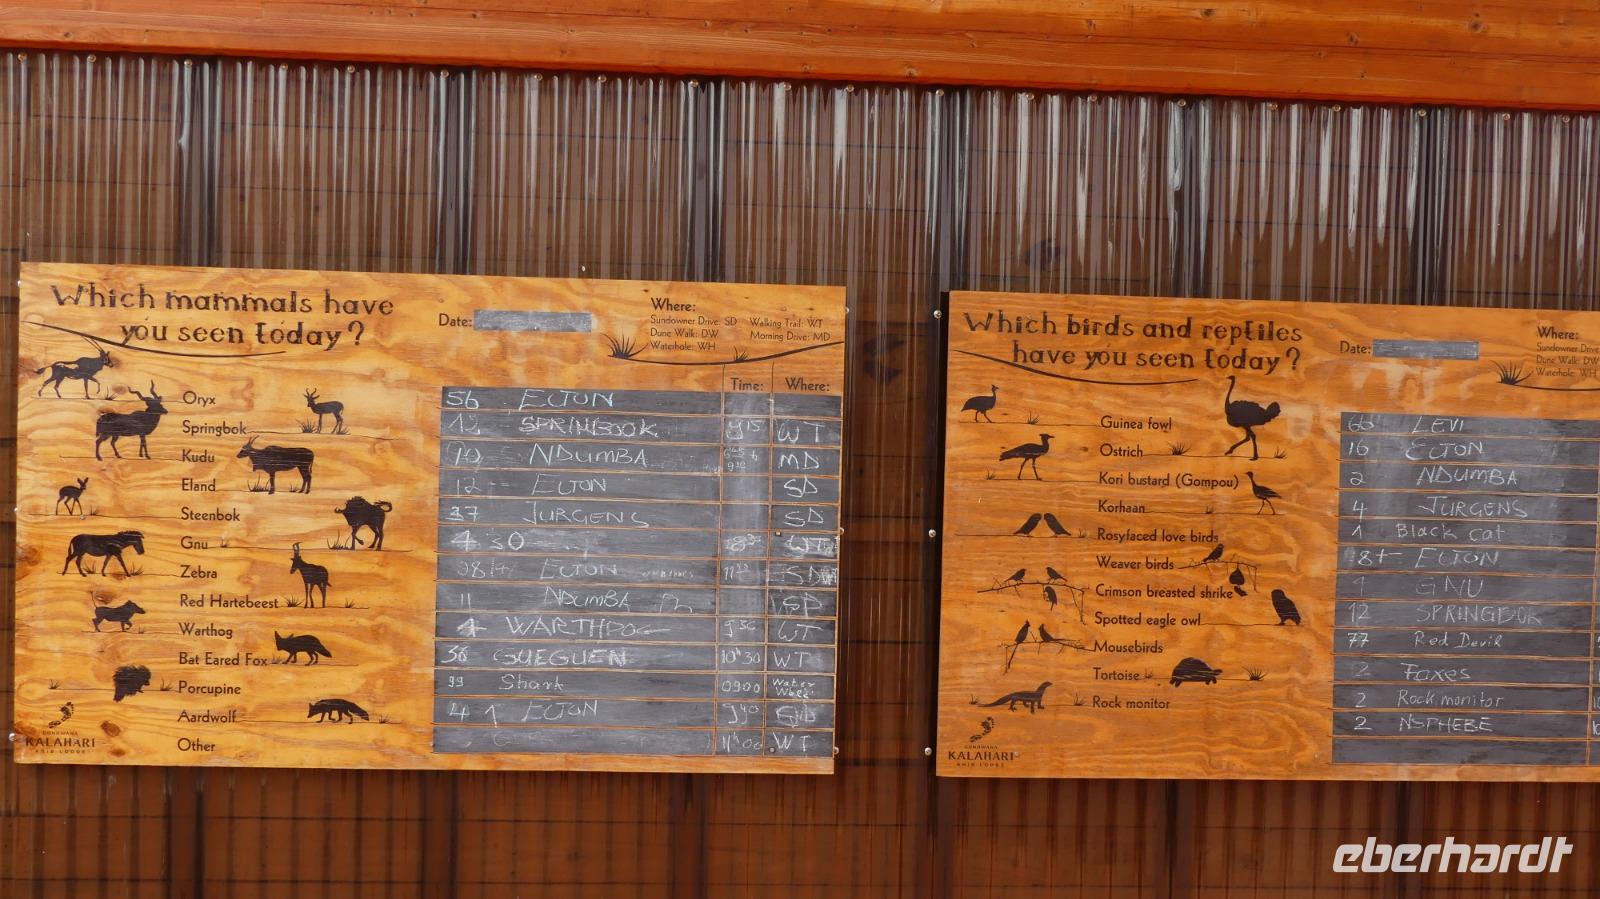 Which mammals have
you seen today?
Date:
Where:
Sundowner Drive: SD Walking Trail: WT
Dune Walk: DW Morning Drive: MD
Waterhole: WH
Time: Where:
Oryx 56 ELTON
Springbok 12 SPRINBOOK WT
Kudu NDUMBA MD
Eland 12 ELTON SD
Steenbok 37 JURGENS SD
Gnu 4 30 WT
Zebra ELTON
Red Hartebeest 11 NDUMBA SD
Warthog WARTHDOG WT
Bat Eared Fox 38 GUEGUEN 10h30 WT
Porcupine 99 Shark 0900 Water
Aardwolf 4 1 ELTON
Other 11h00 WT
GONDWANA
KALAHARI
ANIB LODGE
Which birds and reptiles
have you seen today?
Date:
Where:
Sundowner Drive
Dune Walk: DW
Waterhole: WH
Guinea fowl LEVI
Ostrich 16 ELTON
Kori bustard (Gompou) 2 NDUMBA
Korhaan 4 JURGENS
Rosyfaced love birds 1 Black cat
Weaver birds 18+ ELTON
Crimson breasted shrike 1 GNU
Spotted eagle owl 12 SPRINGBOK
Mousebirds 77 Red Devil
Tortoise 2 Foxes
Rock monitor 2 Rock monitor
2 NSPHEBE
GONDWANA
KALAHARI
ANIB LODGE
eberhardt